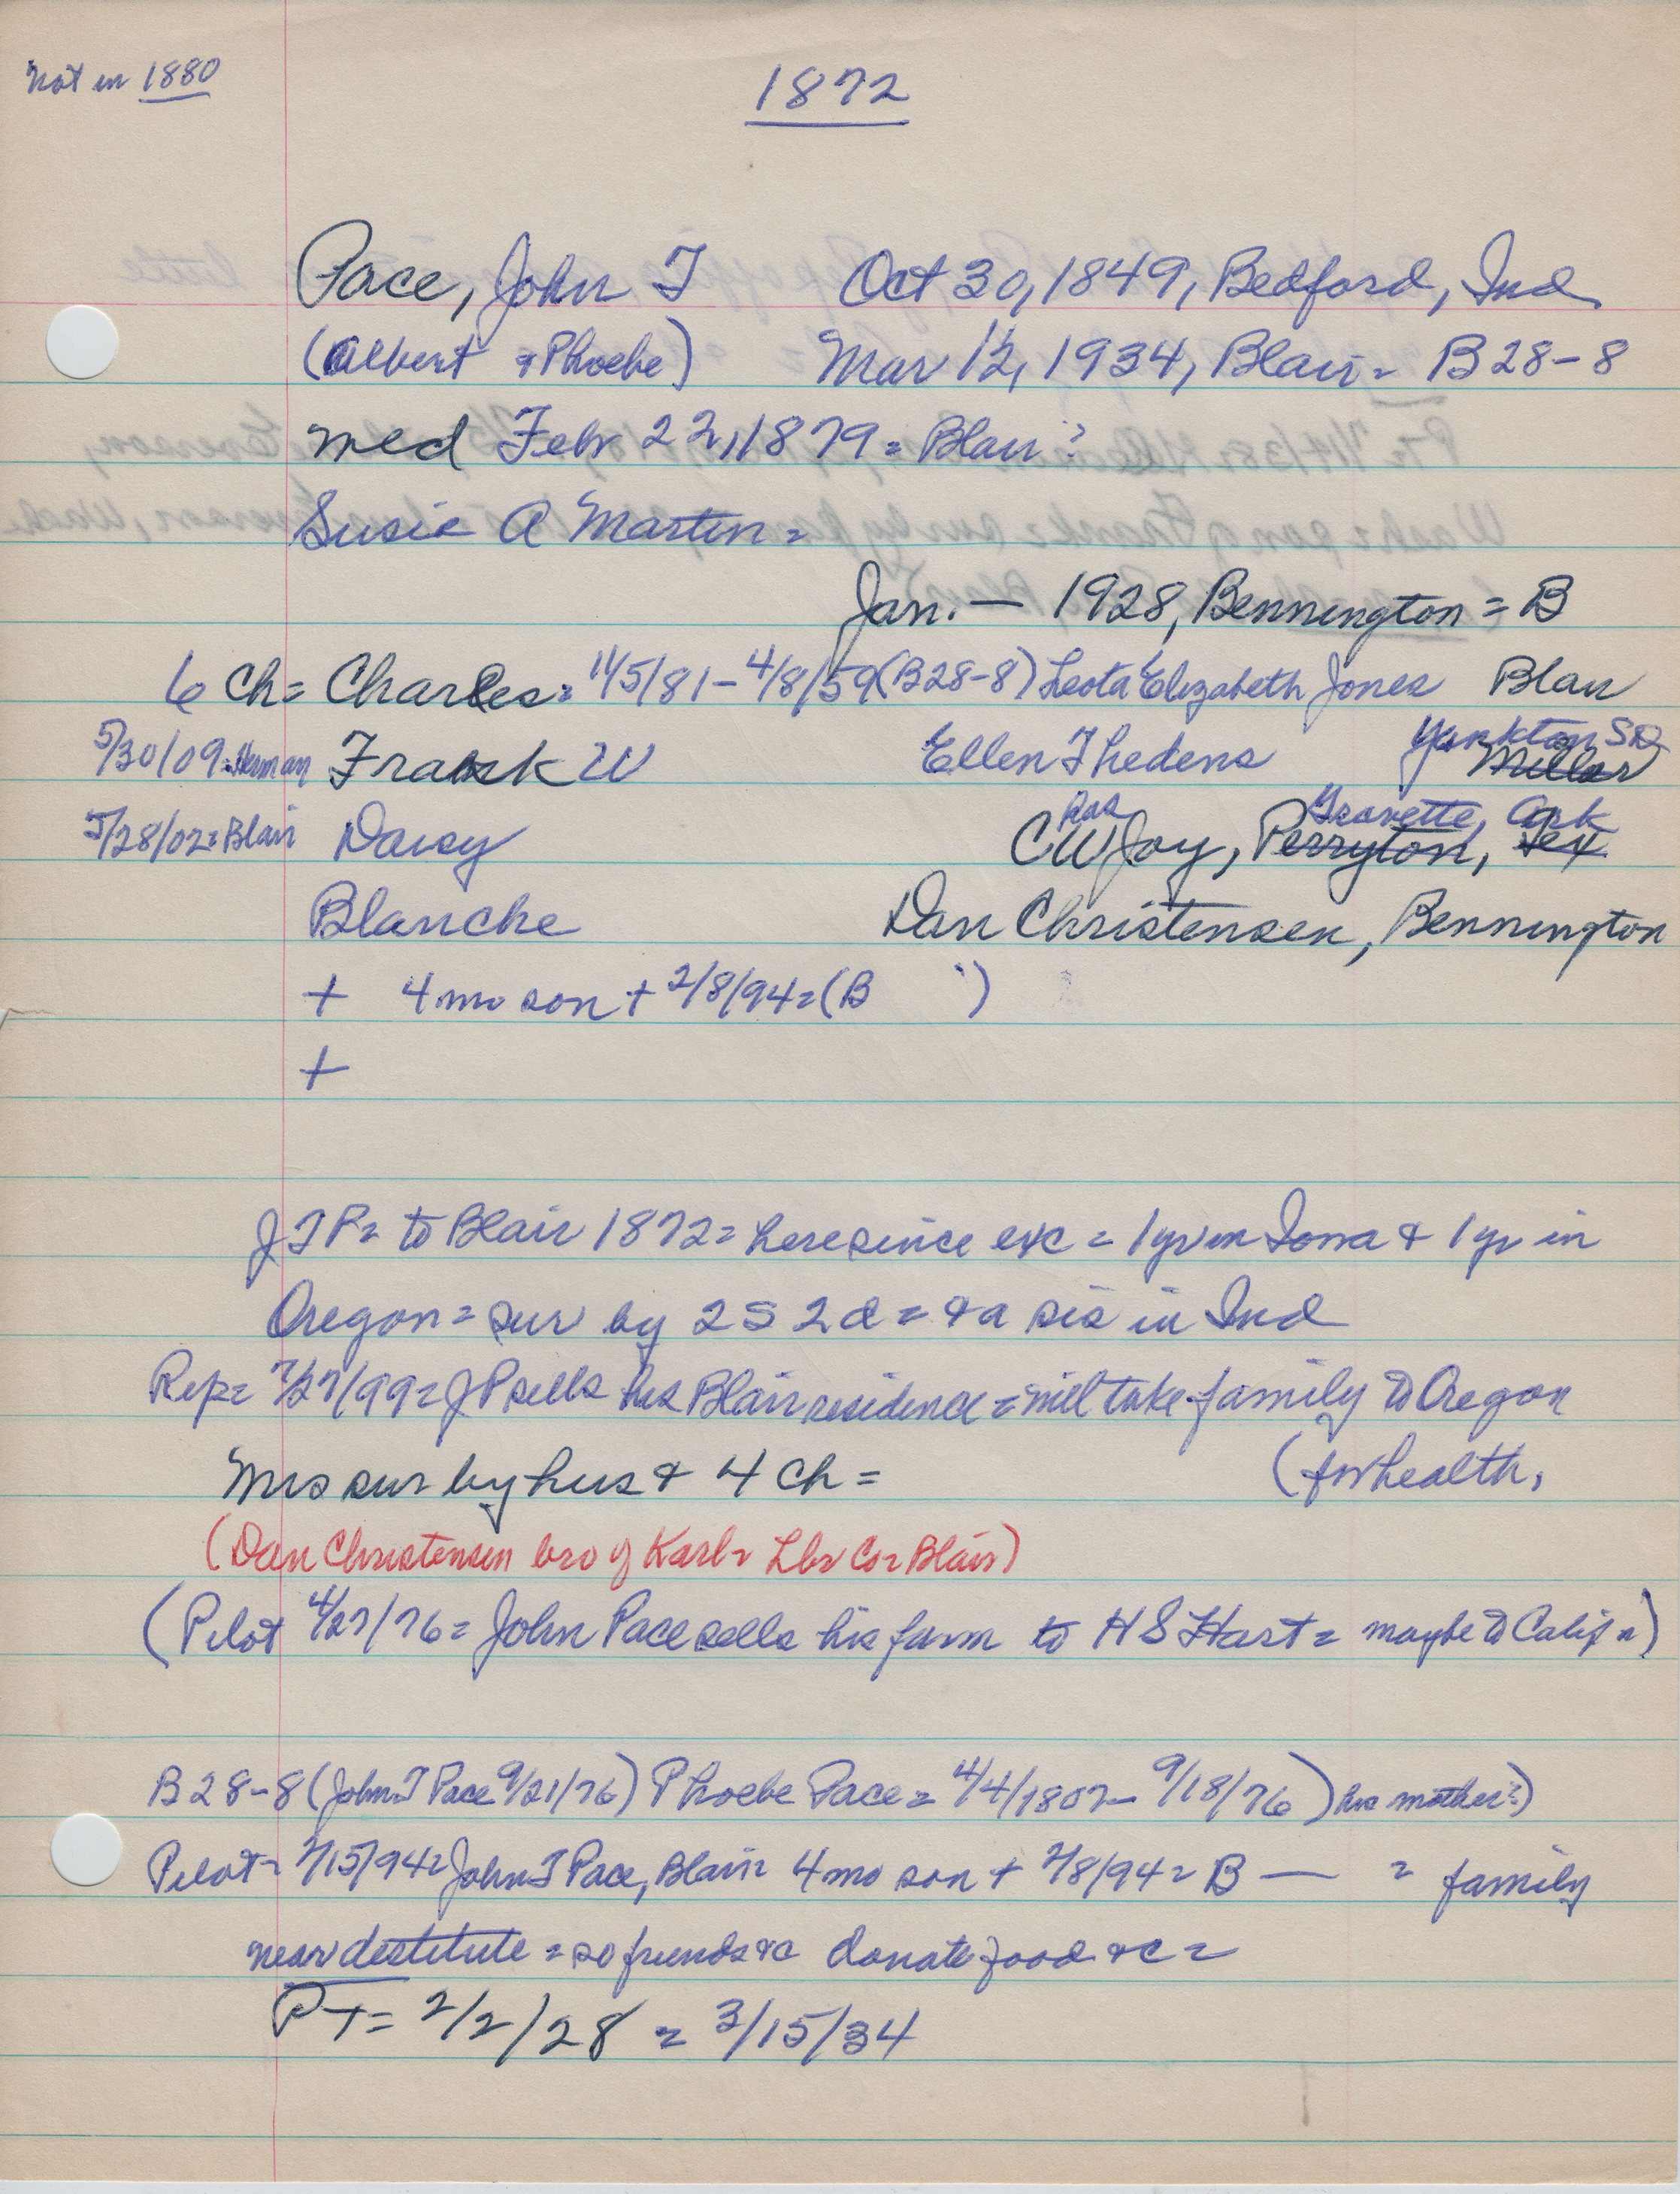 Not in 1880
1872
Pace, John T Oct 30, 1849, Bedford, Ind
(Albert & Phoebe) Mar 12, 1934, Blair = B28-8
med Febr 22, 1879 = Blair?
Susie A Martin =
Jan. — 1928, Bennington = B
6 Ch = Charles = 11/5/81 - 4/8/59 (B28-8) Leota Elizabeth Jones Blair
Yankton SD
5/30/09 = Herman Frank W Ellen Thedens Miller
Ras Gravette, Ark
5/28/02 = Blair Daisy C W Joy, Perryton, Tex
Blanche Dan Christensen, Bennington
+ 4 mo son + 2/8/94 = (B )
+
J T P = to Blair 1872 = here since exc = 1 yr in Iowa & 1 yr in
Oregon = sur by 2 S 2 d = & a sis in Ind
Rep = 7/27/99 = J P sells his Blair residence = will take family to Oregon
Mrs sur by hus & 4 ch = (for health,
(Dan Christensen bro of Karl = Lbr Co = Blair)
(Pilot 4/27/76 = John Pace sells his farm to H S Hart = maybe to Calif = )
B28-8 (John T Pace 9/21/76) Phoebe Pace = 4/4/1807 - 9/18/76) his mother?)
Pilot = 2/15/94 = John T Pace, Blair = 4 mo son + 2/8/94 = B — = family
near destitute = so friends &c donate food &c =
PT = 2/2/28 = 3/15/34